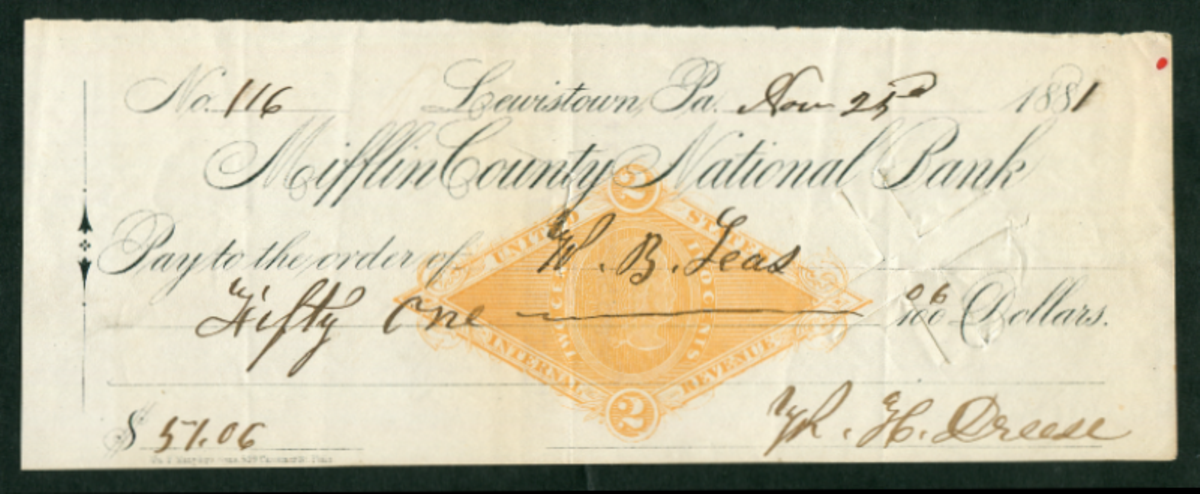 No. 116 Lewistown, Pa. Nov 25 1881
Mifflin County National Bank
Pay to the order of W. B. Leas
Fifty One 06/100 Dollars.
$ 51.06
H. Dreese
2
UNITED STATES
INTERNAL REVENUE
2